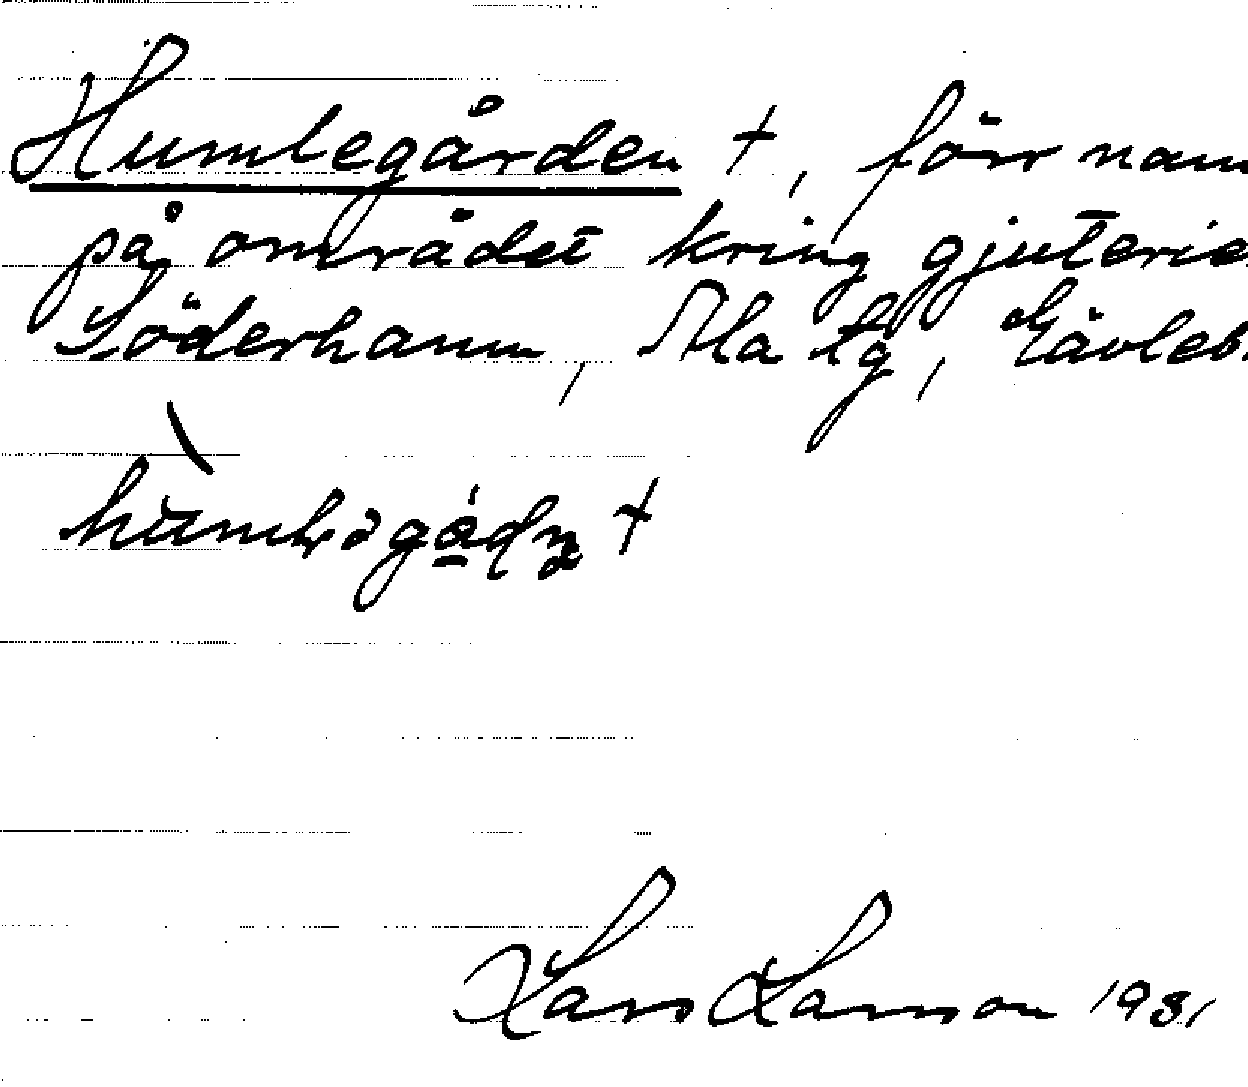 Humlegården †, förr nam
på området kring gjuterie
Söderhamn, Ala tg, Gävleb.
Lars Larsson 1931